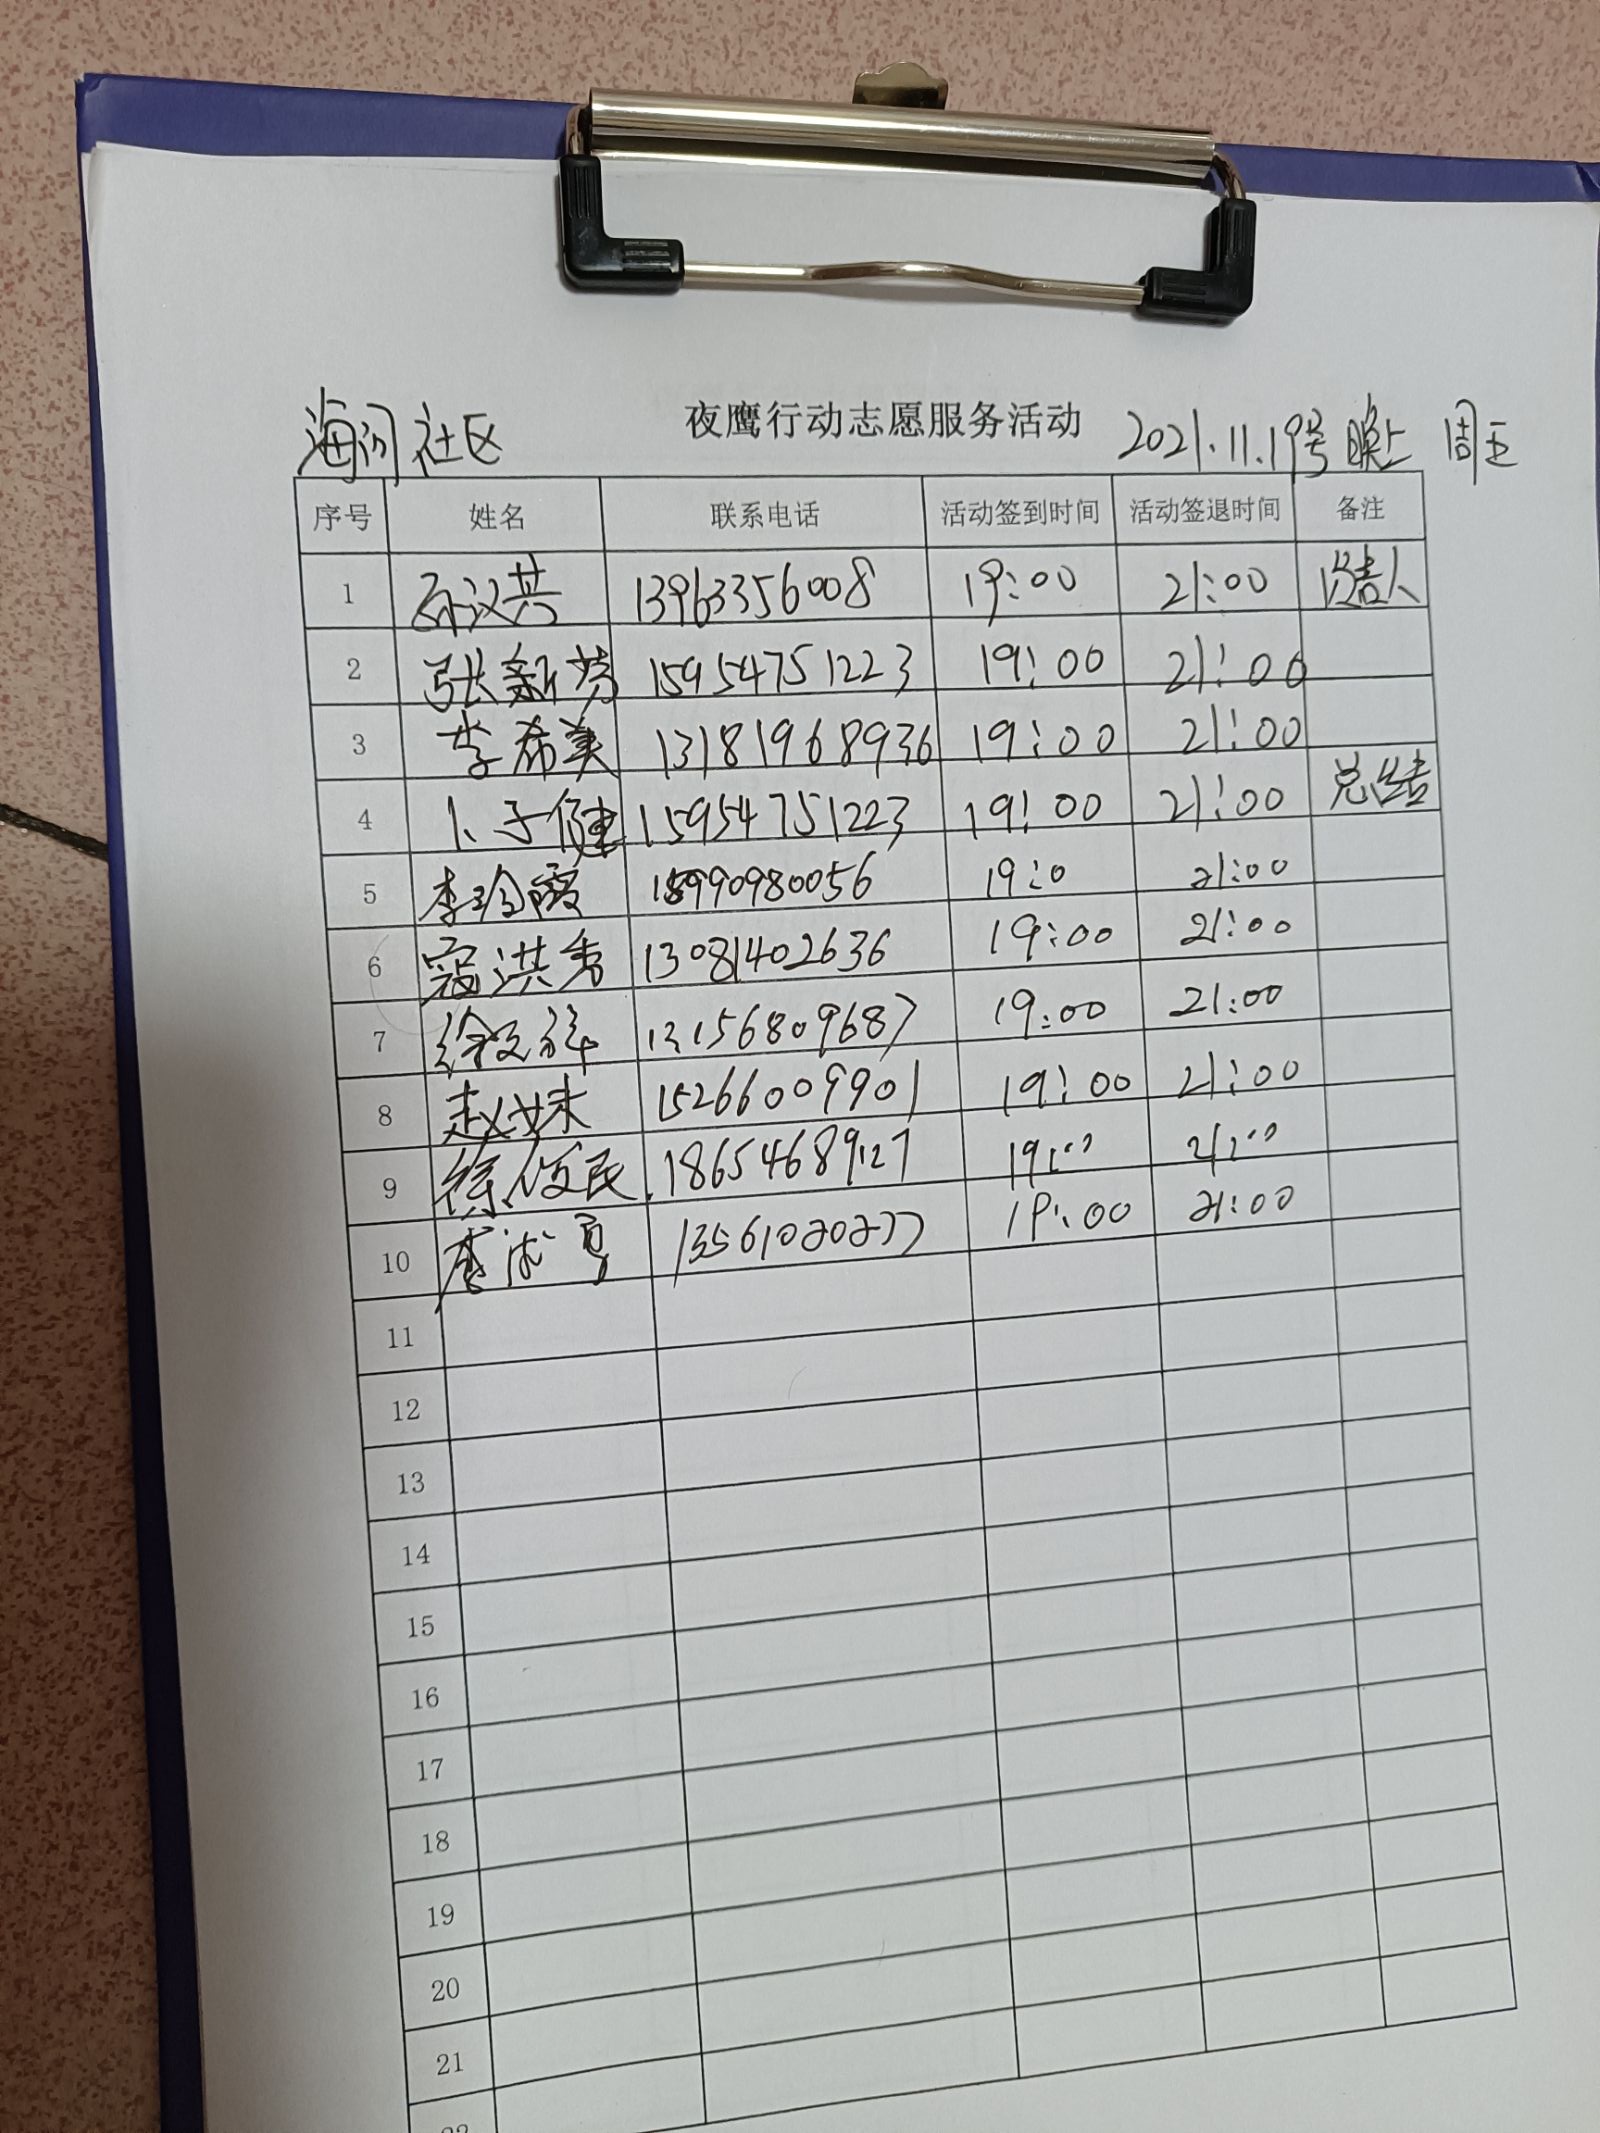 海河社区 夜鹰行动志愿服务活动 2021.11.19号晚上 周五
序号 姓名 联系电话 活动签到时间 活动签退时间 备注
1 13963356008 19:00 21:00
2 张新芳 15954751223 19:00 21:00
3 李希美 13181968936 19:00 21:00
4 卜子健 15954751223 19:00 21:00 总结
5 李玲霞 18990980056 19:0 21:00
6 寇洪秀 13081402636 19:00 21:00
7 徐文祥 13156809687 19:00 21:00
8 赵妹 15266009901 19:00 21:00
9 徐俊民 18654689127 19:00 21:00
10 13561020277 19:00 21:00
11
12
13
14
15
16
17
18
19
20
21